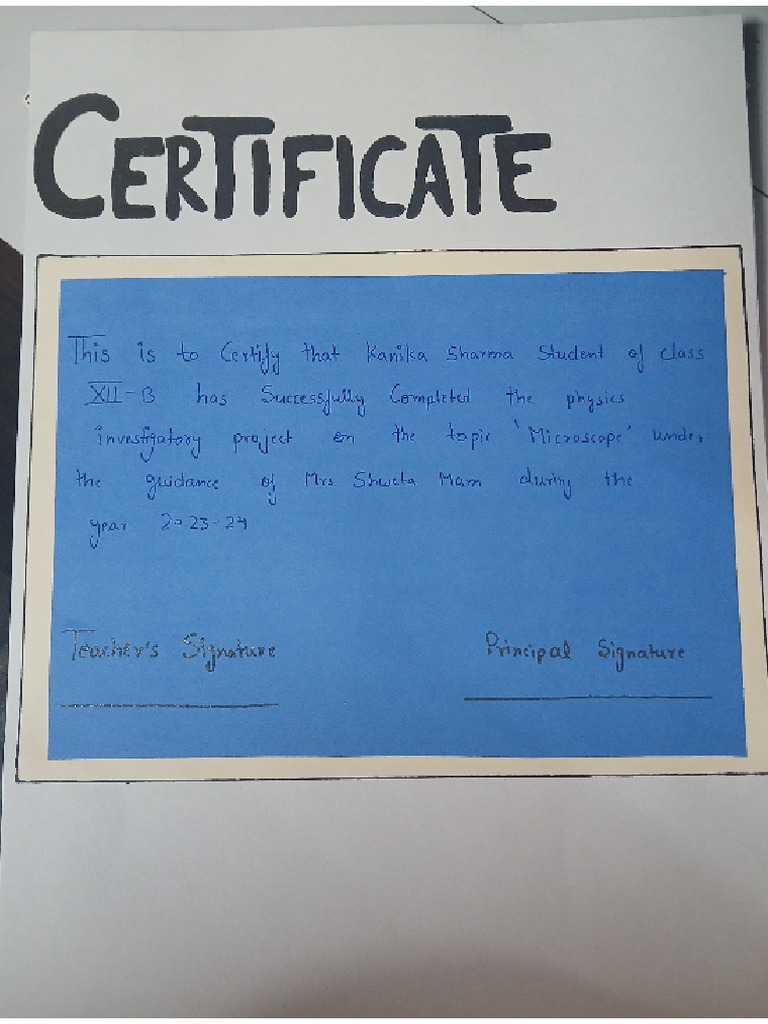 CERTIFICATE
This is to Certify that Kanika Sharma Student of class
XII-B has Successfully Completed the physics
investigatory project on the topic 'Microscope' under
the guidance of Mrs. Shweta Mam during the
year 2023-24
Teacher's Signature
Principal Signature